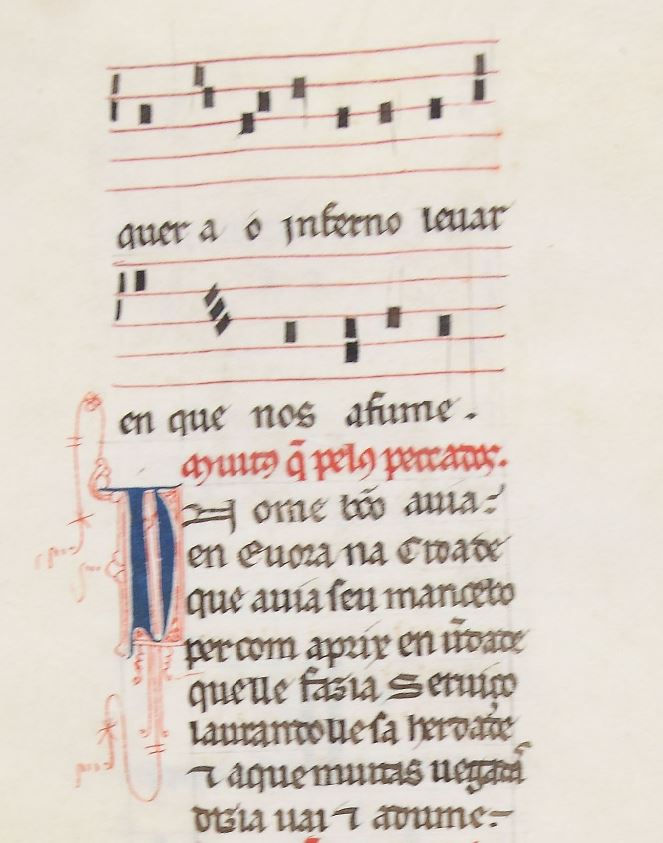 quer a o jnferno leuar
en que nos afume.
Muitos q̃ pelos peccados.
Un ome bõo auia
en Euora na Cidade
que auia seu mancebo
per com aprix en ũdade
quelle fazia Seruiço
laurandolle sa herdade
⁊ aque muitas uegadas
dizia uai ⁊ adume